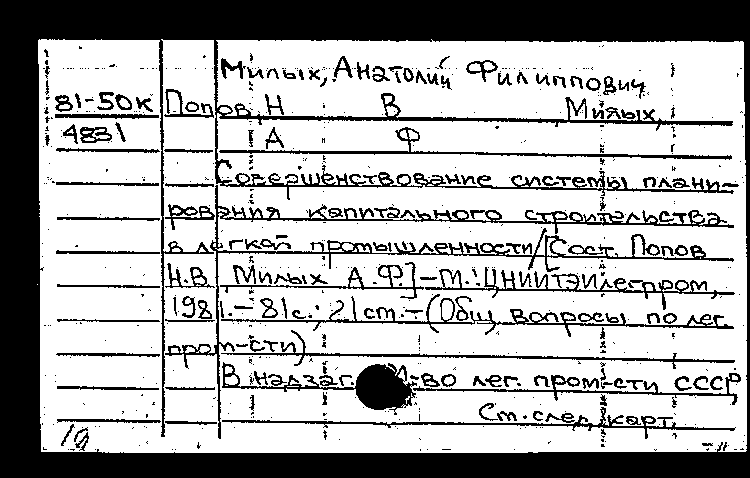 Милых, Анатолий Филиппович
81-50К Попов, Н В , Милых,
4831 А Ф
Совершенствование системы плани-
рования капитального строительства
в легкой промышленности/[Сост. Попов
Н.В. Милых А.Ф.]-М.:ЦНИИТЭИлегпром,
1981.- 81с.; 21см.-(Общ. вопросы по лег.
пром-сти)
В надзаг. М-во лег. пром-сти СССР,
См. след. карт.